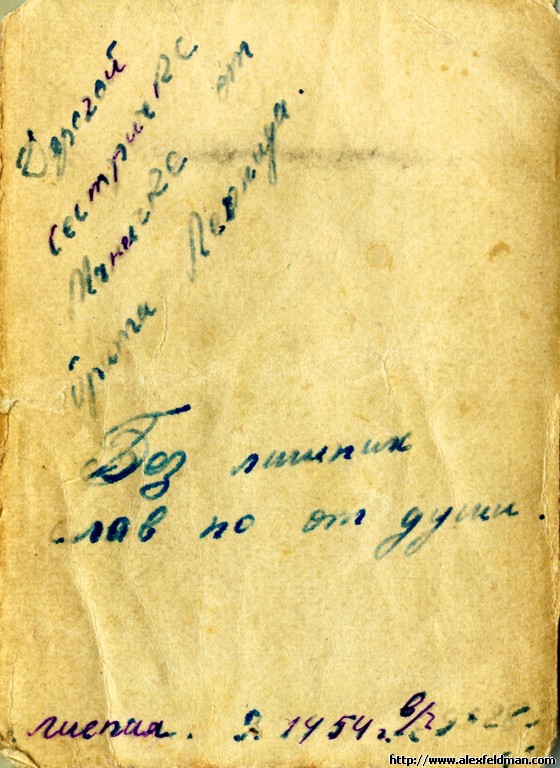 Дорогой
сестричке
Ниночке от
брата Леонида.
Без лишних
слав но от души.
1954 г. в/ч
http://www.alexfeldman.com